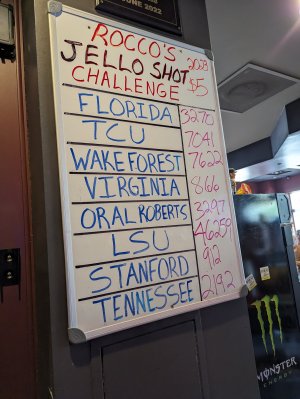 JUNE 2022
ROCCO'S 2023
JELLO SHOT $5
CHALLENGE
FLORIDA 3270
TCU 7041
WAKE FOREST 7622
VIRGINIA 866
ORAL ROBERTS 3297
LSU 46259
STANFORD 912
TENNESSEE 2192
MONSTER
ENERGY